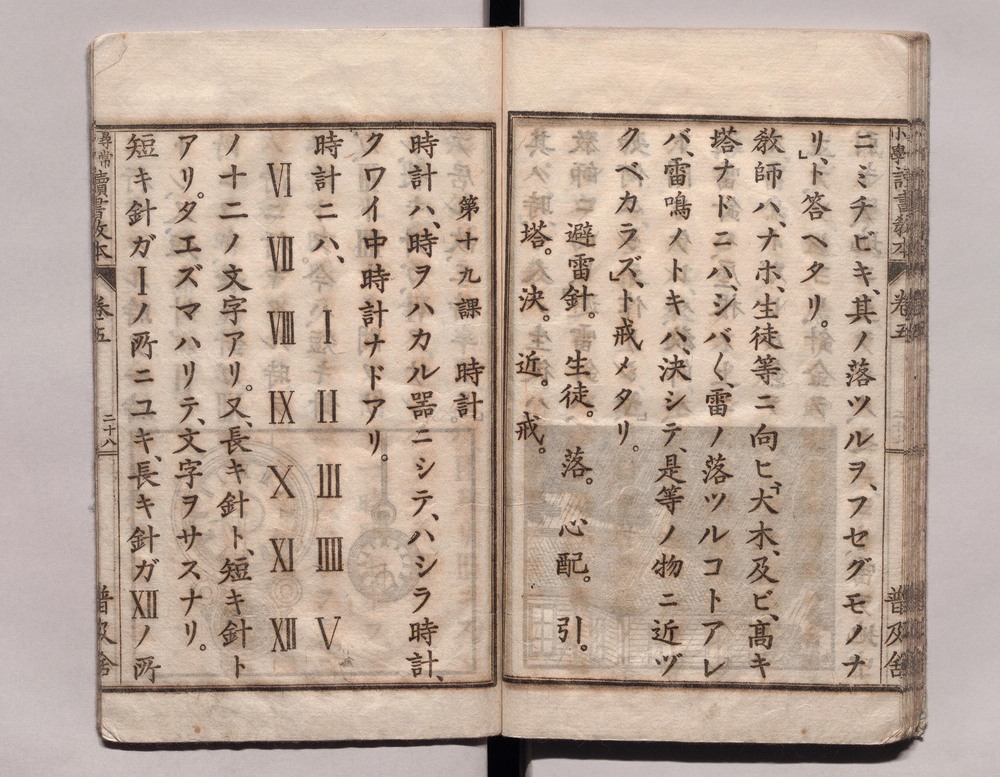 ニミチビキ、其ノ落ツルヲ、フセグモノナ
リ、」ト答ヘタリ。
教師ハ、ナホ、生徒等ニ向ヒ、「大木、及ビ、高キ
塔ナドニハ、シバ〱、雷ノ落ツルコトアレ
バ、雷鳴ノトキハ、決シテ、是等ノ物ニ近ヅ
クベカラズ、」ト戒メタリ。
避雷針。 生徒。 落。 心配。 引。
塔。 決。 近。 戒。
第十九課 時計
時計ハ、時ヲハカル器ニシテ、ハシラ時計、
クワイ中時計ナドアリ。
時計ニハ、 I II III IIII V
VI VII VIII IX X XI XII
ノ十二ノ文字アリ。又、長キ針ト、短キ針ト
アリ。タエズマハリテ、文字ヲサスナリ。
短キ針ガIノ所ニユキ、長キ針ガXIIノ所
尋常讀書教本 卷五 二十八 普及舍